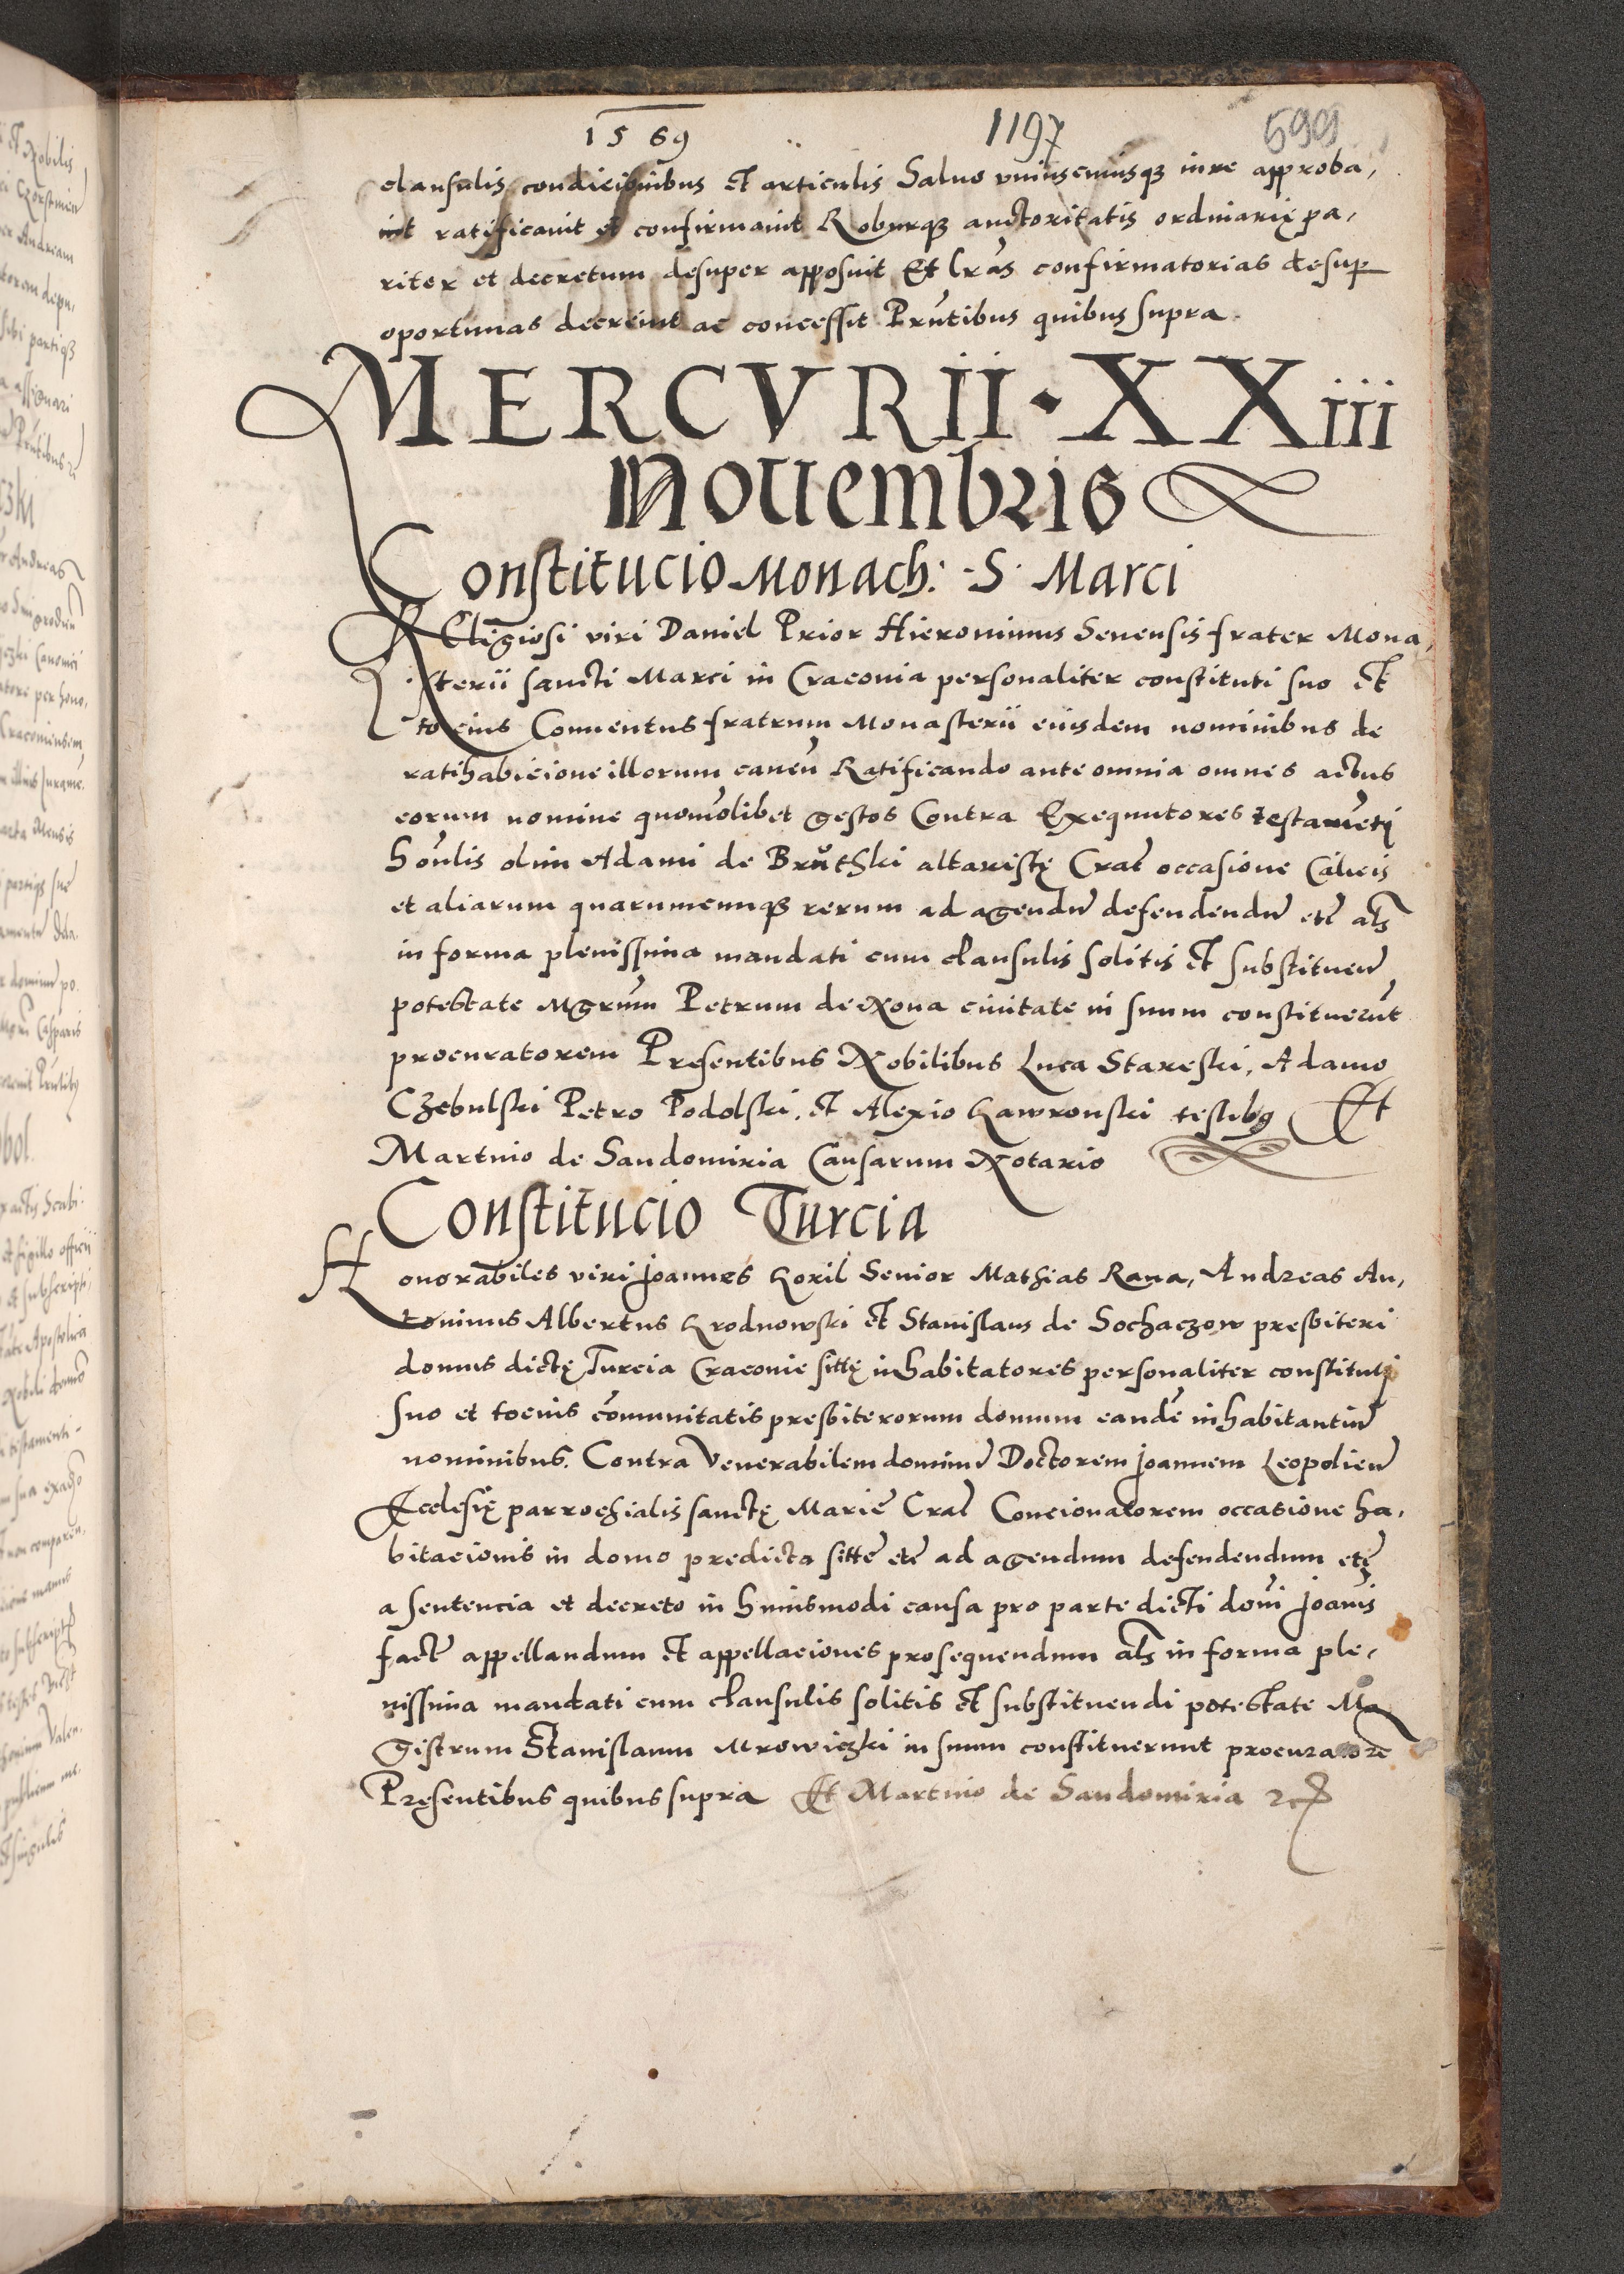 1569 1197 599
clausulis condicionibus et articulis Saluo vniuscuiusqz iure approba,
uit ratificauit et confirmauit Roburqz auctoritatis ordinarię pa,
riter et decretum desuper apposuit Et lrãs confirmatorias desup
oportunas decreuit ac concessit Prñtibus quibus supra
MERCVRII · XXiii
Nouembris
Constitucio Monach: S. Marci
REligiosi viri Daniel Prior Hieronimus Senensis frater Mona,
sterii sancti Marci in Cracouia personaliter constituti suo et
tocius Conuentus fratrum Monasterii eiusdem nominibus de
ratihabicione illorum caueñ Ratificando ante omnia omnes actus
eorum nomine quomõlibet gestos Contra Exequutores testamẽti
hoñlis olim Adami de Bruthki altaristę Crac̃ occasione Calicis
et aliarum quarumcunqz rerum ad agendũ defendendũ etc̃ als̃
in forma plenissima mandati cum clausulis solitis et substituen̄
potestate Mgrũm Petrum de Noua ciuitate in suum constituerũt
procuratorem Presentibus Nobilibus Luca Stareski, Adamo
Czebulski Petro Podolski, et Alexio Gawronski testibq Et
Martino de Sandomiria Causarum Notario
Constitucio Turcia
Honorabiles viri Joannes Goril Senior Mathias Rana, Andreas An,
toninus Albertus Grodnowski et Stanislaus de Sochaczow presbiteri
domus dictę Turcia Cracouie sittę inhabitatores personaliter constituti
suo et tocius cõmunitatis presbiterorum domum eandẽ inhabitantiũ
nominibus. Contra Venerabilem dominũ Doctorem Joannem Leopolien̄
Ecclesię parrochialis sanctę Marie Crac̃ Concionatorem occasione ha,
bitacionis in domo predicta sitte etc̃ ad agendum defendendum etc̃
a sentencia et decreto in huiusmodi causa pro parte dicti dom̃i Joañis
fact̃ appellandum et appellaciones prosequendum als̃ in forma ple,
nissima mandati cum clausulis solitis et substituendi potestate Ma
gistrum Stanislaum Mrowiczki in suum constituerunt procuratorẽ
Pręsentibus quibus supra Et Martino de Sandomiria